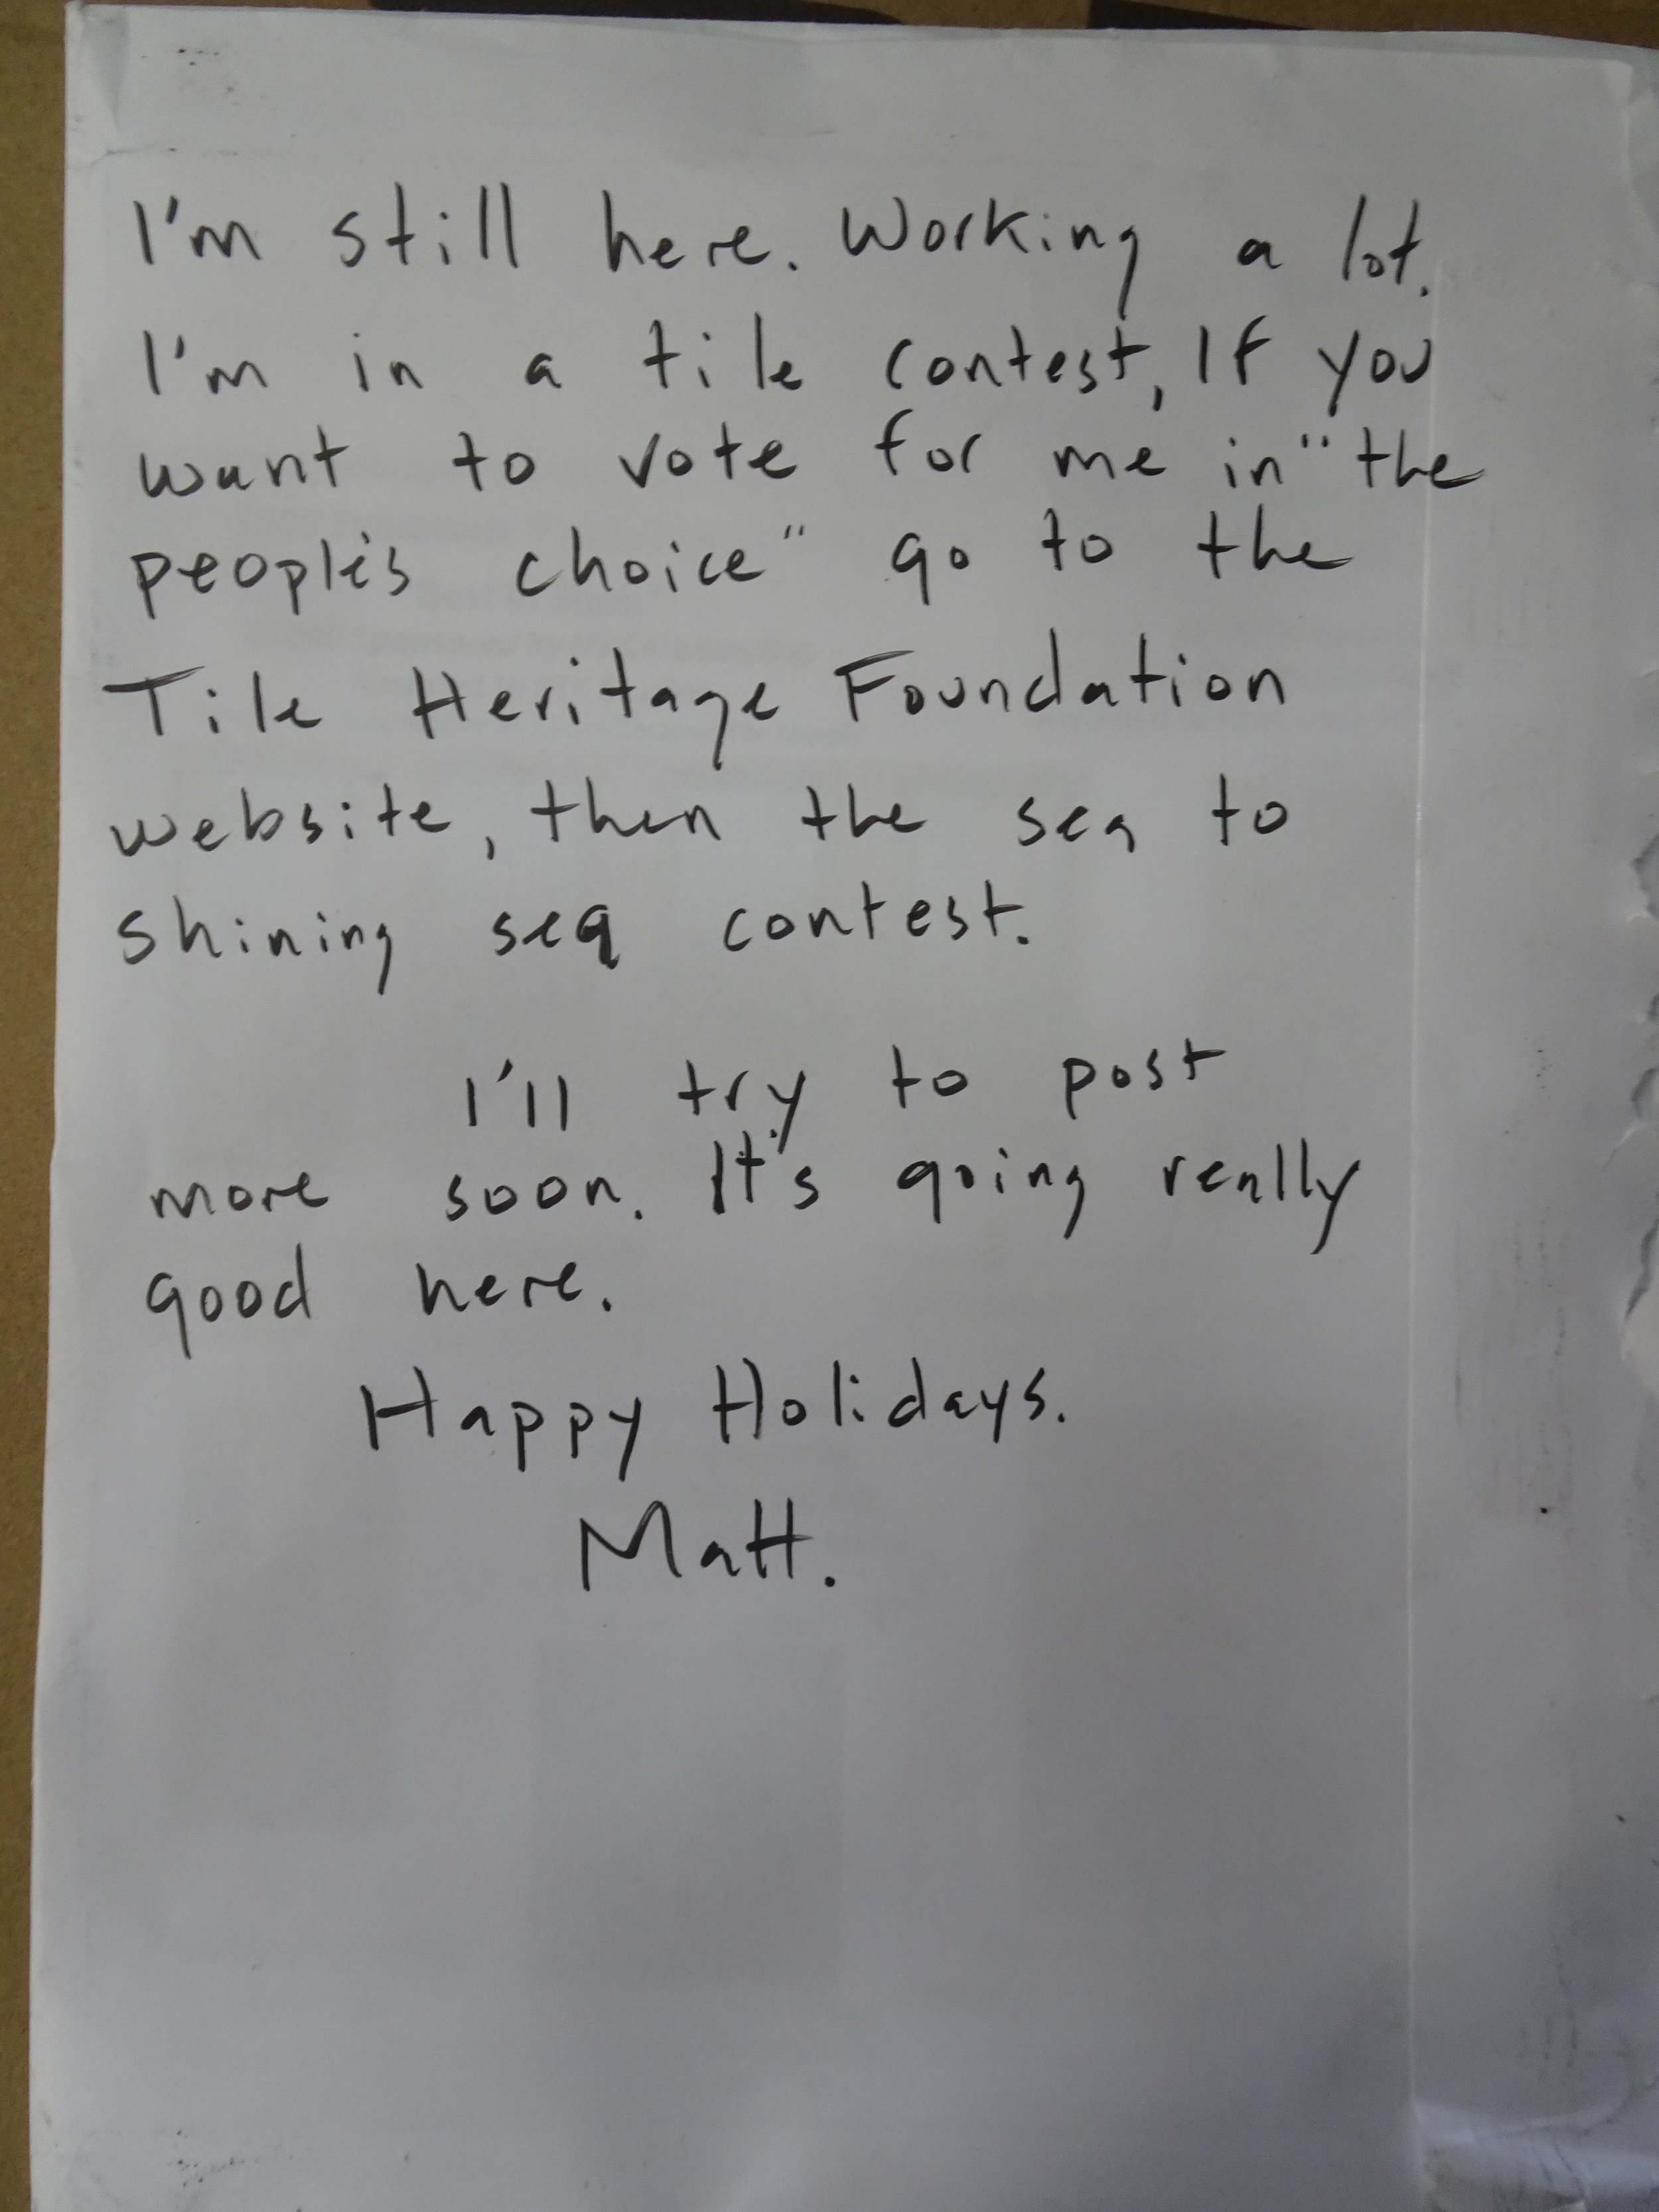 I'm still here. Working a lot.
I'm in a tile contest, If you
want to vote for me in "the
people's choice" go to the
Tile Heritage Foundation
website, then the sea to
shining sea contest.
I'll try to post
more soon. It's going really
good here.
Happy Holidays.
Matt.